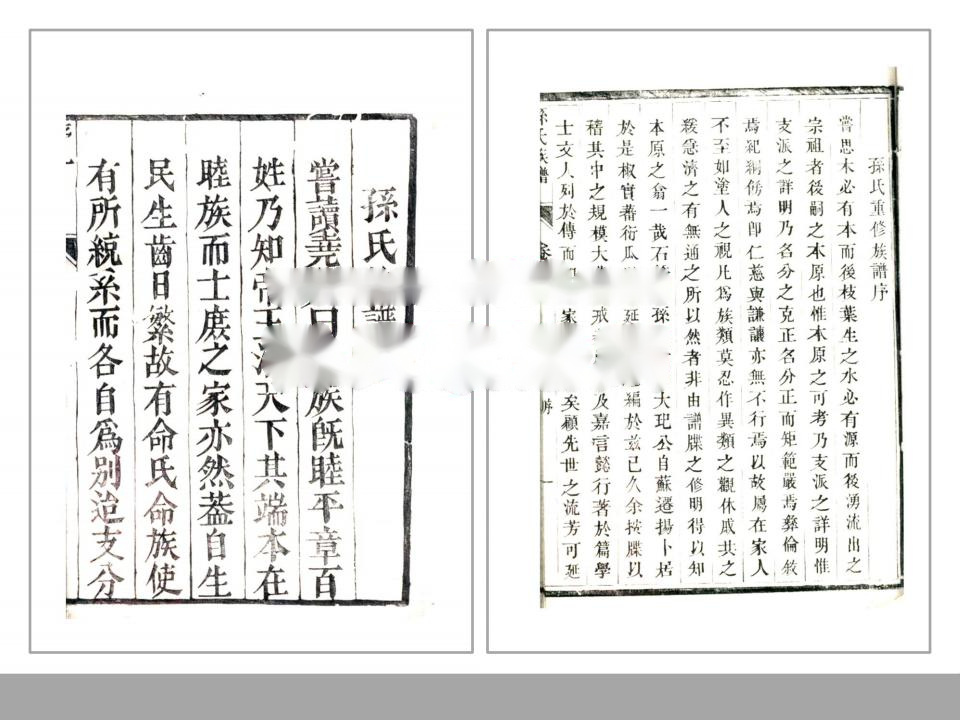 孫氏 譜
嘗讀堯 曰 族旣睦平章百
姓乃知帝 天下其端本在
睦族而士庶之家亦然葢自生
民生齒日繁故有命氏命族使
有所統系而各自爲別迨支分
孫氏重修族譜序
嘗思木必有本而後枝葉生之水必有源而後湧流出之
宗祖者後嗣之本原也惟本原之可考乃支派之詳明惟
支派之詳明乃名分之克正名分正而矩範嚴焉彝倫敘
焉紀綱飭焉卽仁慈與謙讓亦無不行焉以故屬在家人
不至如塗人之視凡爲族類莫忍作異類之觀休戚共之
緩急濟之有無通之所以然者非由譜牒之修明得以知
本原之翁一哉石 孫 大玘公自蘇遷揚卜居
於是椒實蕃衍瓜 延 編於茲已久余按牒以
稽其中之規模大 戒 及嘉言懿行著於篇學
士文人列於傳而 家 矣顧先世之流芳可延
孫氏族譜 卷 序 一